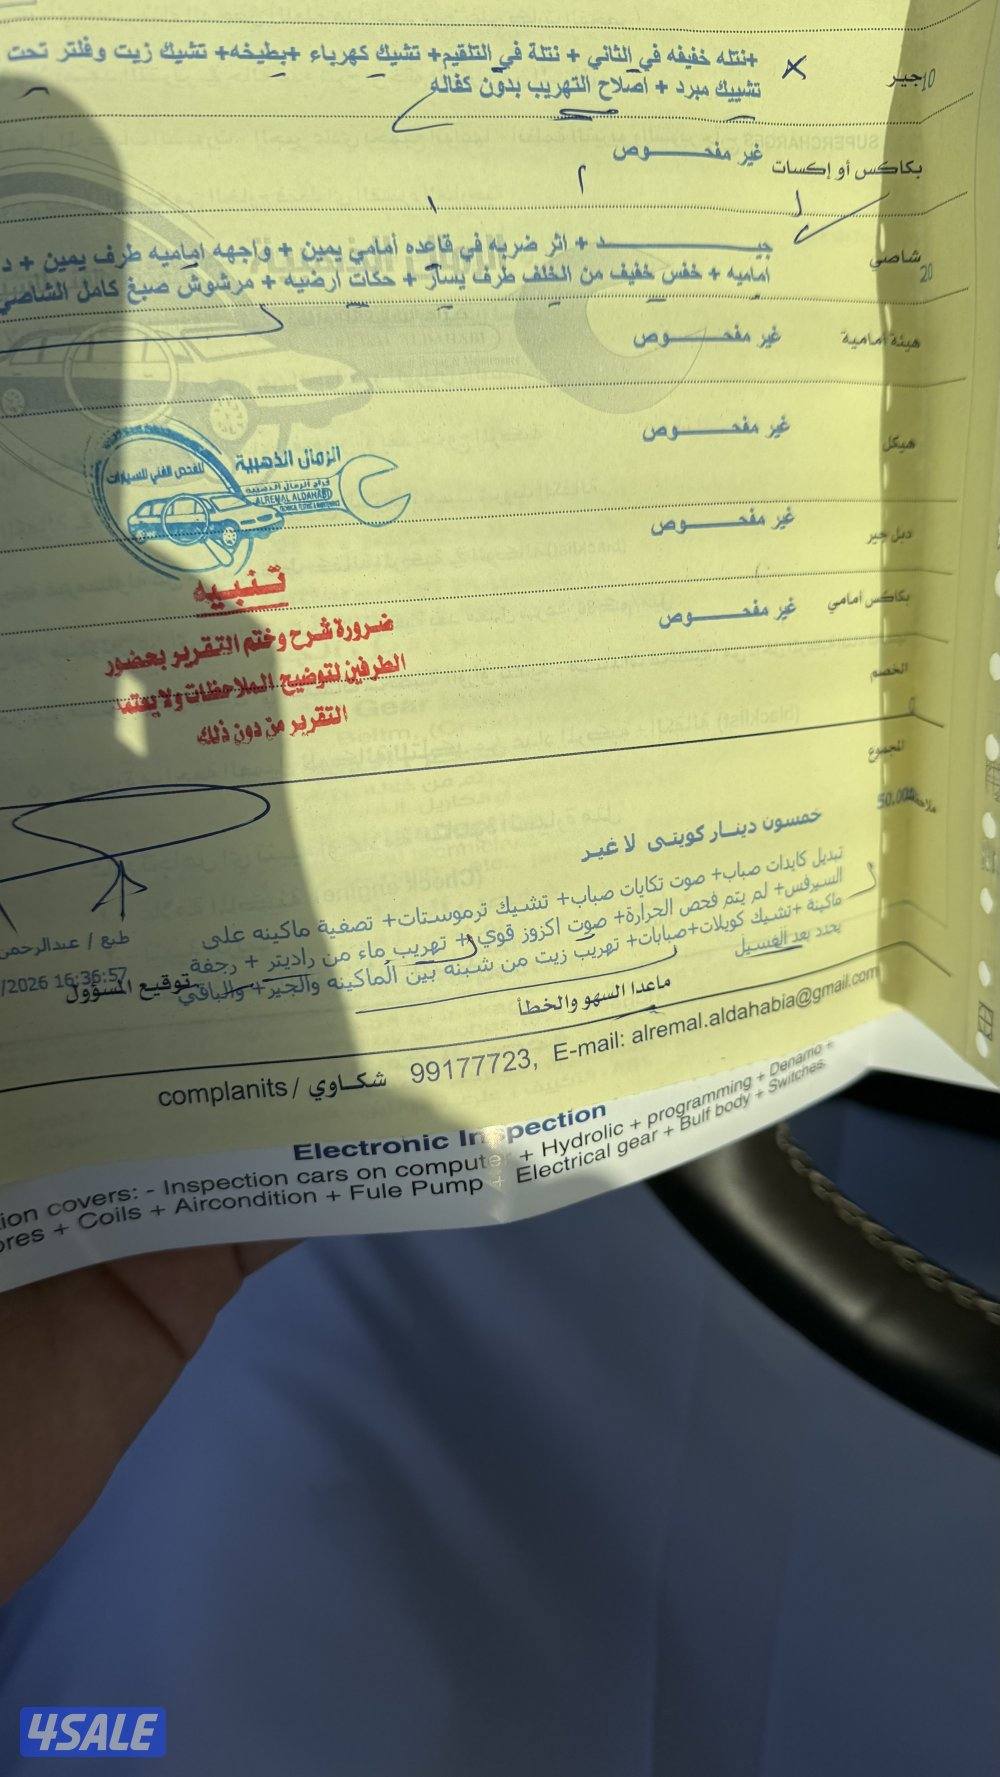 10 جير
+نتله خفيفه في الثاني + نتلة في التلقيم+ تشيك كهرباء +بطيخه+ تشيك زيت وفلتر تحت
تشييك مبرد + اصلاح التهريب بدون كفاله
بكاكس أو إكسات غير مفحـــــوص
20 شاصي
جيـــــــــــد + اثر ضربه في قاعده أمامي يمين + واجهه اماميه طرف يمين + د
اماميه + خفس خفيف من الخلف طرف يسار + حكات ارضيه + مرشوش صبغ كامل الشاصي
هيئة امامية غير مفحـــــوص
هيكل غير مفحـــــوص
الرمال الذهبية
للفحص الفني للسيارات
كراج الرمال الذهبية
ALREMAL ALDAHABI
دبل جير غير مفحـــــوص
بكاكس أمامي غير مفحـــــوص
تنبيه
ضرورة شرح وختم التقرير بحضور
الطرفين لتوضيح الملاحظات ولا يعتمد
التقرير من دون ذلك
الخصم
0
المجموع
50.000
خمسون دينار كويتي لا غير
ملاحظة
تبديل كايدات صباب+ صوت تكايات صباب+ تشيك ترموستات+ تصفية ماكينه على
السيرفس+ لم يتم فحص الحرارة+ صوت اكزوز قوي + تهريب ماء من راديتر + رجفة
ماكينة +تشيك كويلات+صبابات+ تهريب زيت من شبنه بين الماكينه والجير+ والباقي
يحدد بعد الغسيل
طبع / عبدالرحمن
/2026 16:36:57
توقيع المسؤول
ماعدا السهو والخطأ
complanits / شكاوي 99177723, E-mail: alremal.aldahabia@gmail.com
Electronic Inspection
ion covers: - Inspection cars on computer + Hydrolic + programming + Denamo +
ores + Coils + Aircondition + Fule Pump + Electrical gear + Bulf body + Switches.
4SALE